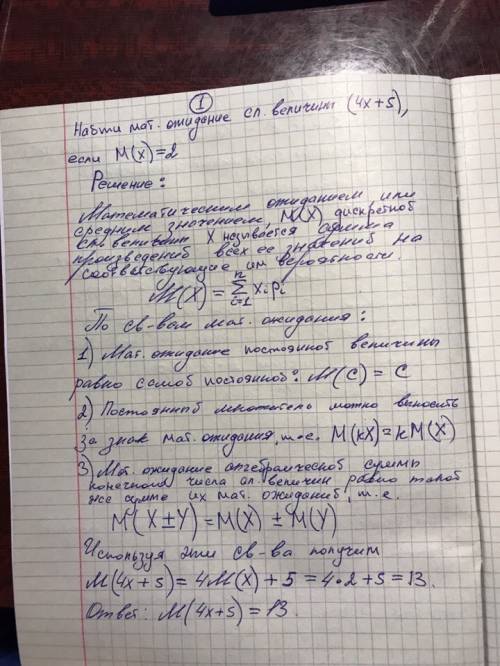 1
Найти мат. ожидание сл. величины (4x+5),
если M(x)=2
Решение:
Математическим ожиданием или
средним значением M(X) дискретной
сл. величины X называется сумма
произведений всех ее значений на
соответствующие им вероятности.
M(X) = \sum_{i=1}^{n} x_i p_i
По св-вам мат. ожидания:
1) Мат. ожидание постоянной величины
равно самой постоянной: M(C) = C
2) Постоянный множитель можно выносить
за знак мат. ожидания, т.е. M(kX)=kM(X)
3) Мат. ожидание алгебраической суммы
конечного числа сл. величин равно такой
же сумме их мат. ожиданий, т.е.
M(X±Y)=M(X) ± M(Y)
Используя эти св-ва получим
M(4x+5)= 4M(X)+5 = 4•2+5=13.
Ответ: M(4x+5)=13.